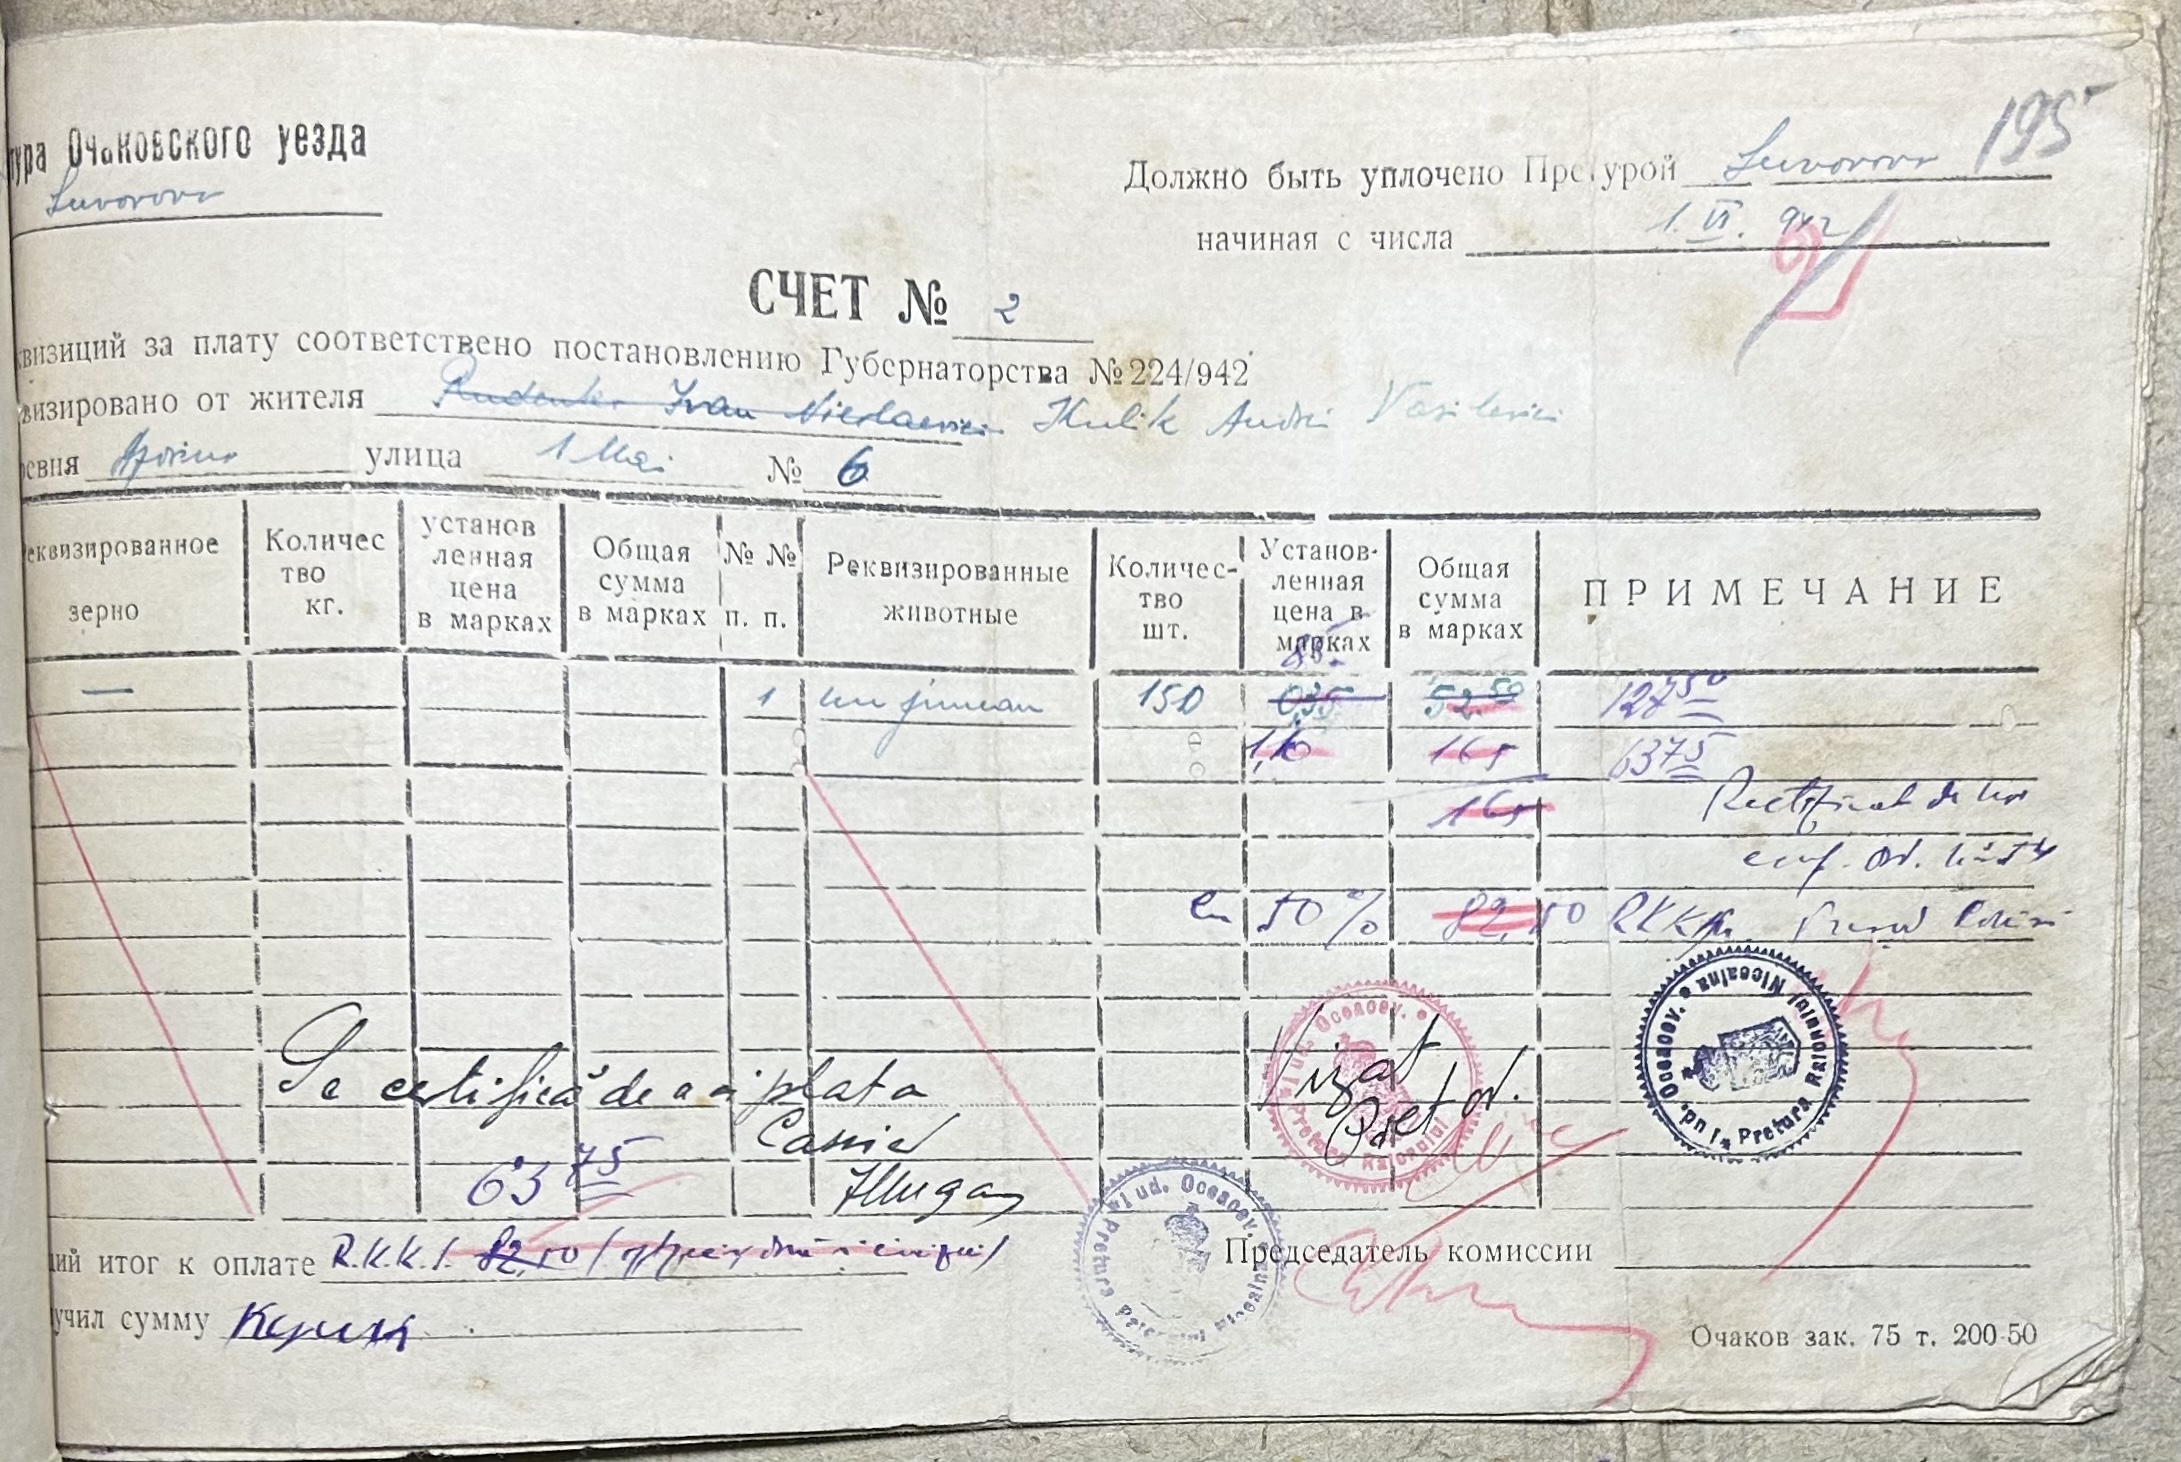 тура Очаковского уезда
Suvorovo
195
Должно быть уплочено Претурой Suvorovo
начиная с числа 1. VI. 942
СЧЕТ № 2
квизиций за плату соответствено постановлению Губернаторства № 224/942
визировано от жителя Rudenko Ivan Nicolaevici Kulik Andrei Vasilevici
евня улица 1 Mai № 6
еквизированное зерно
Количес тво кг.
установ ленная цена в марках
Общая сумма в марках
№ № п. п.
Реквизированные животные
Количес- тво шт.
Установ- ленная цена в марках
Общая сумма в марках
ПРИМЕЧАНИЕ
85.
— 1 un juncan 150 035 52.50 127 50
1,10 165 6375
165 Rectificat de noi
conf. Ord.
cu 50% 82,50 RKK
Se certifică de a a plata
Casier
63 75
Vizat
Pretor.
Jud. Oceacov. Pretura Raionului
Jud. Oceacov. Pretura Raionului Nicolaina
Jud. Oceacov. Pretura
ий итог к оплате R.K.K.S. 82,50
Председатель комиссии
учил сумму Кулик
Очаков зак. 75 т. 200-50